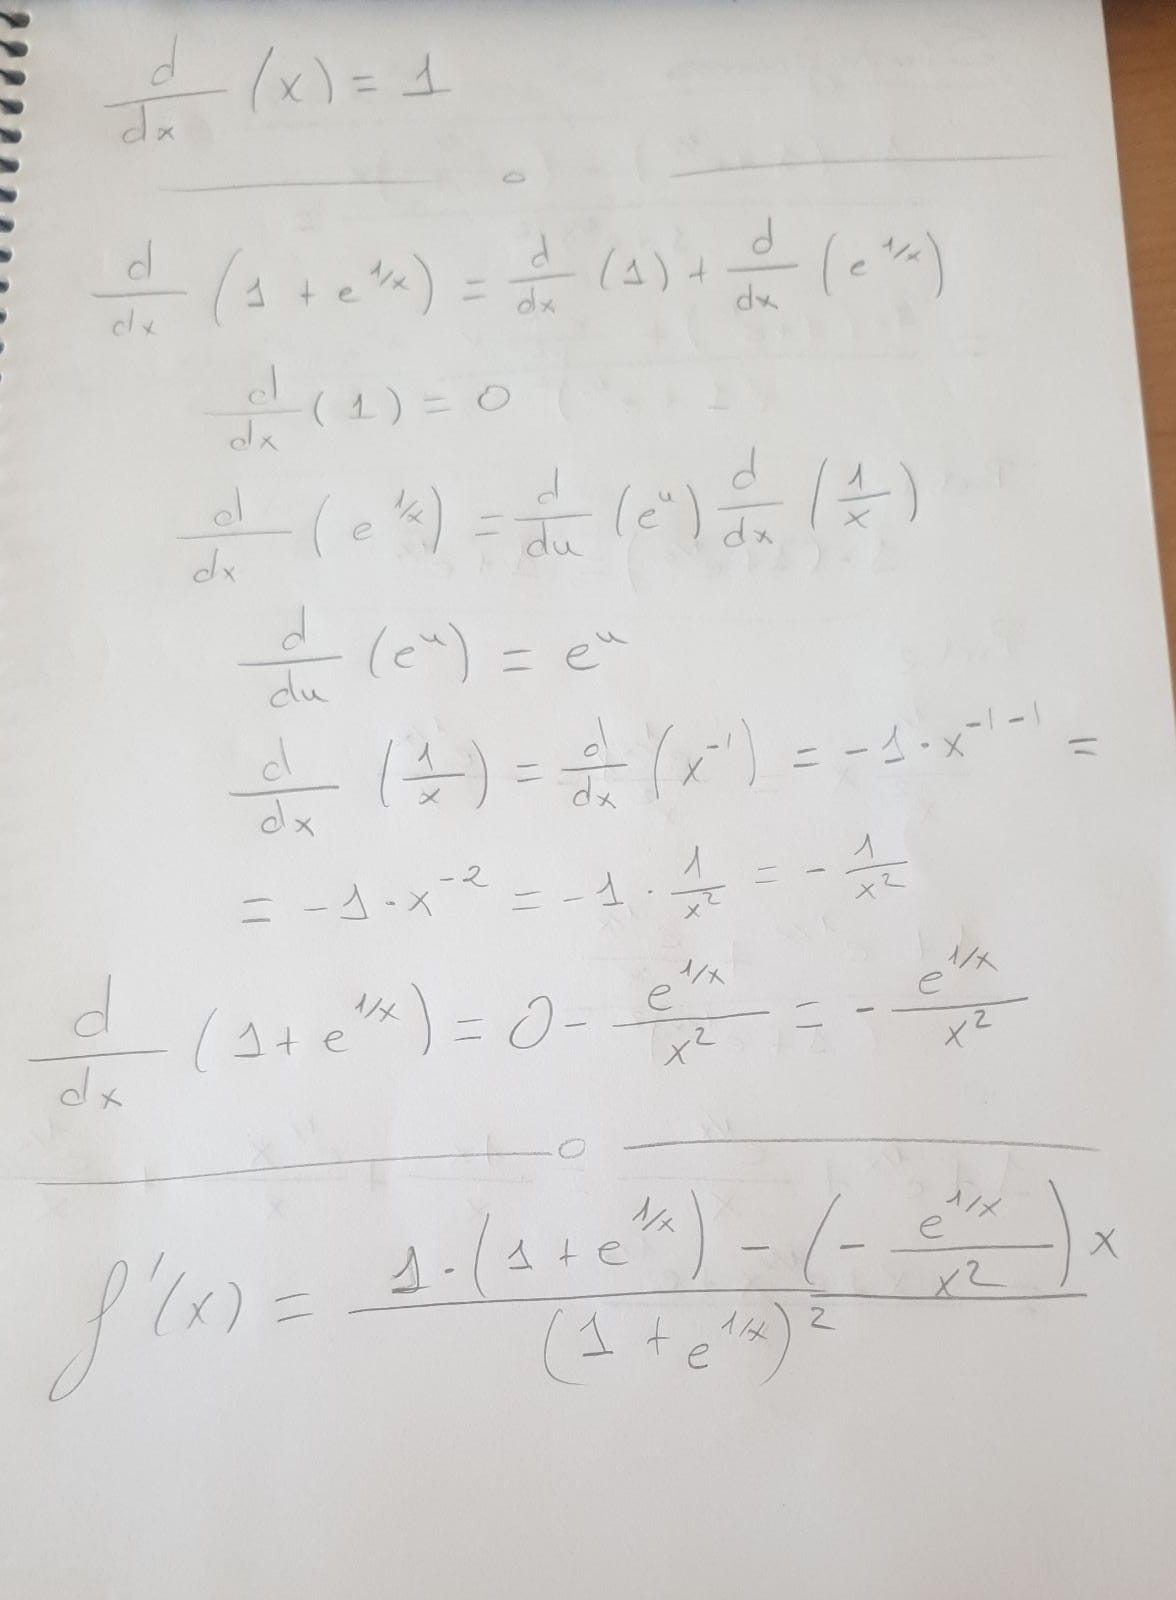 d/dx (x) = 1
d/dx (1 + e^{1/x}) = d/dx (1) + d/dx (e^{1/x})
d/dx (1) = 0
d/dx (e^{1/x}) = d/du (e^u) d/dx (1/x)
d/du (e^u) = e^u
d/dx (1/x) = d/dx (x^{-1}) = -1 · x^{-1-1} =
= -1 · x^{-2} = -1 · 1/x^2 = - 1/x^2
d/dx (1 + e^{1/x}) = 0 - e^{1/x}/x^2 = - e^{1/x}/x^2
f'(x) = (1 · (1 + e^{1/x}) - (- e^{1/x}/x^2) x)/(1 + e^{1/x})^2